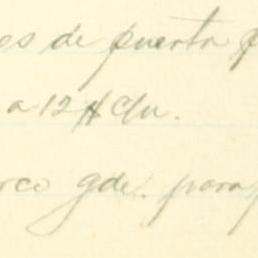 es de puerta p
a 12 # c/u.
rco gde. para